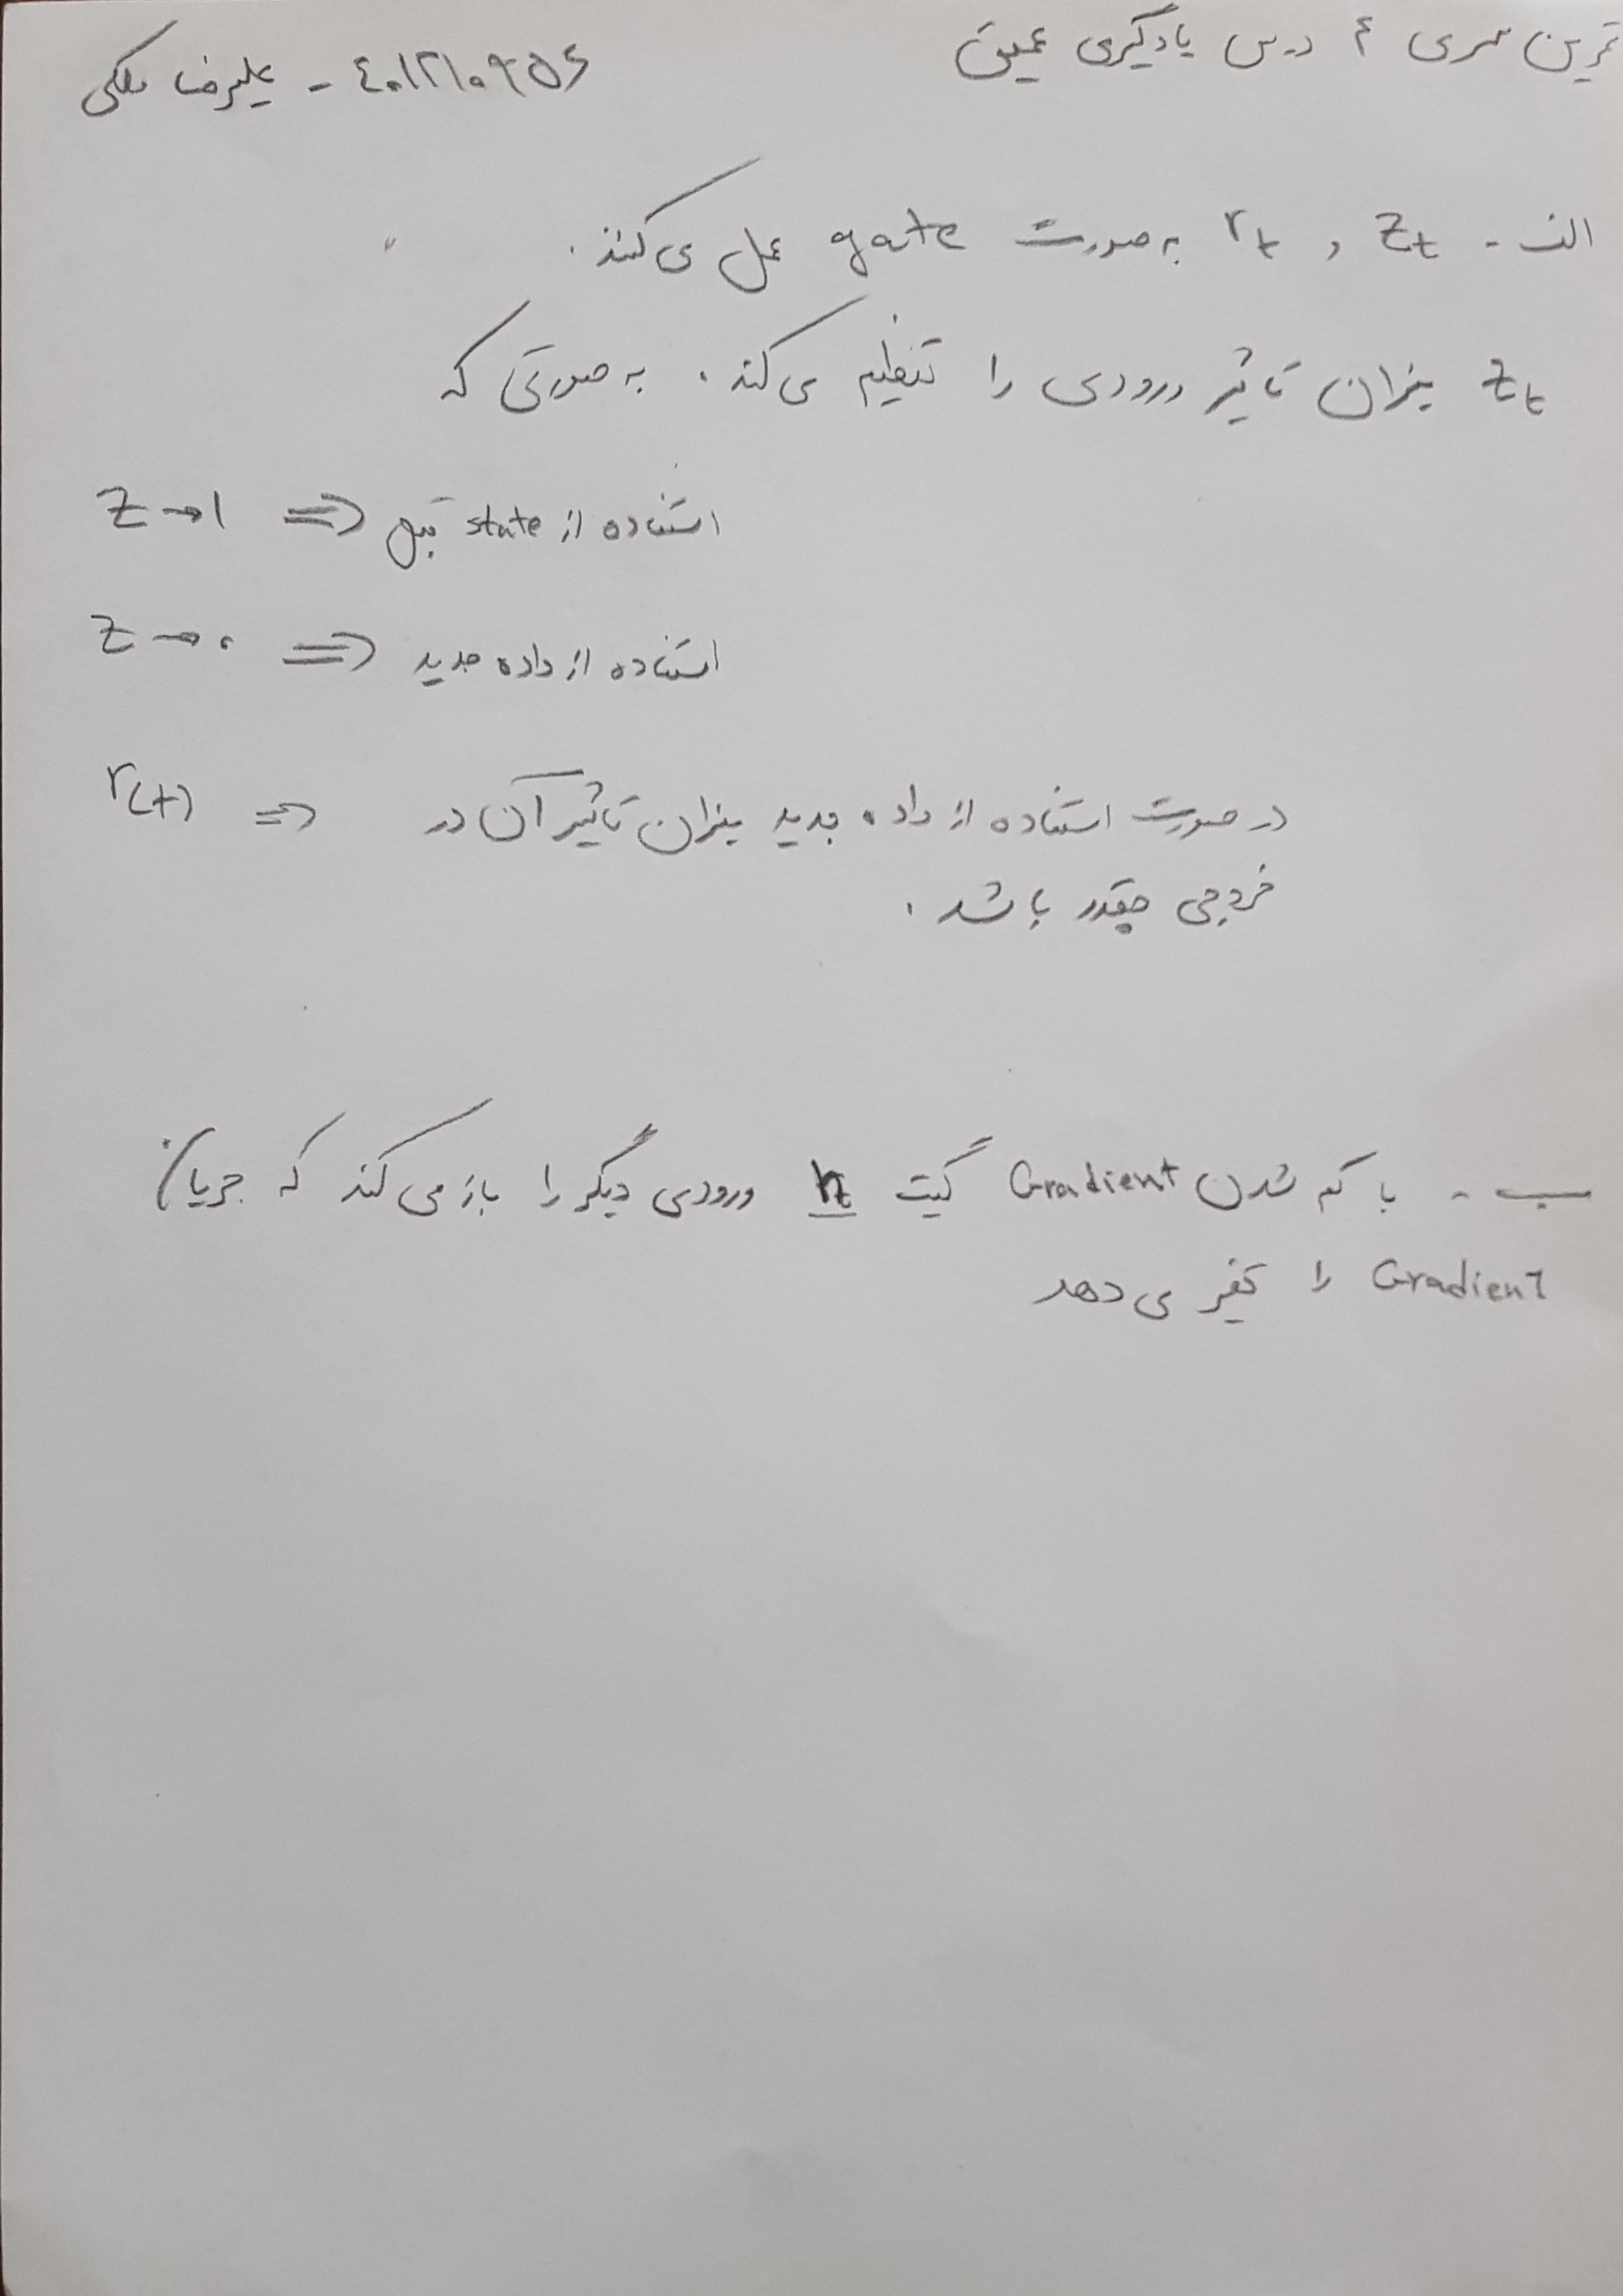 تمرین سری ۴ درس یادگیری عمیق
۴۰۱۲۱۰۹۵۶ - علیرضا ملکی
الف - Zt و rt به صورت gate عمل می کنند.
Zt میزان تاثیر ورودی را تنظیم می کند. به صورتی که
Z → 1 ⇒ استفاده از state قبل
Z → ۰ ⇒ استفاده از داده جدید
r(t) ⇒ در صورت استفاده از داده جدید میزان تاثیر آن در
خروجی چقدر باشد.
ب - با کم شدن Gradient گیت ورودی دیگر را باز می کند که جریان
Gradient را تغیر می دهد